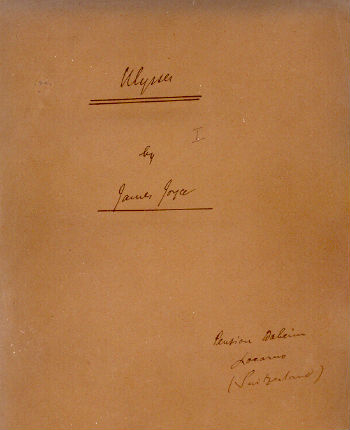 Ulysses
I
by
James Joyce
Pension Daheim
Locarno
(Switzerland)